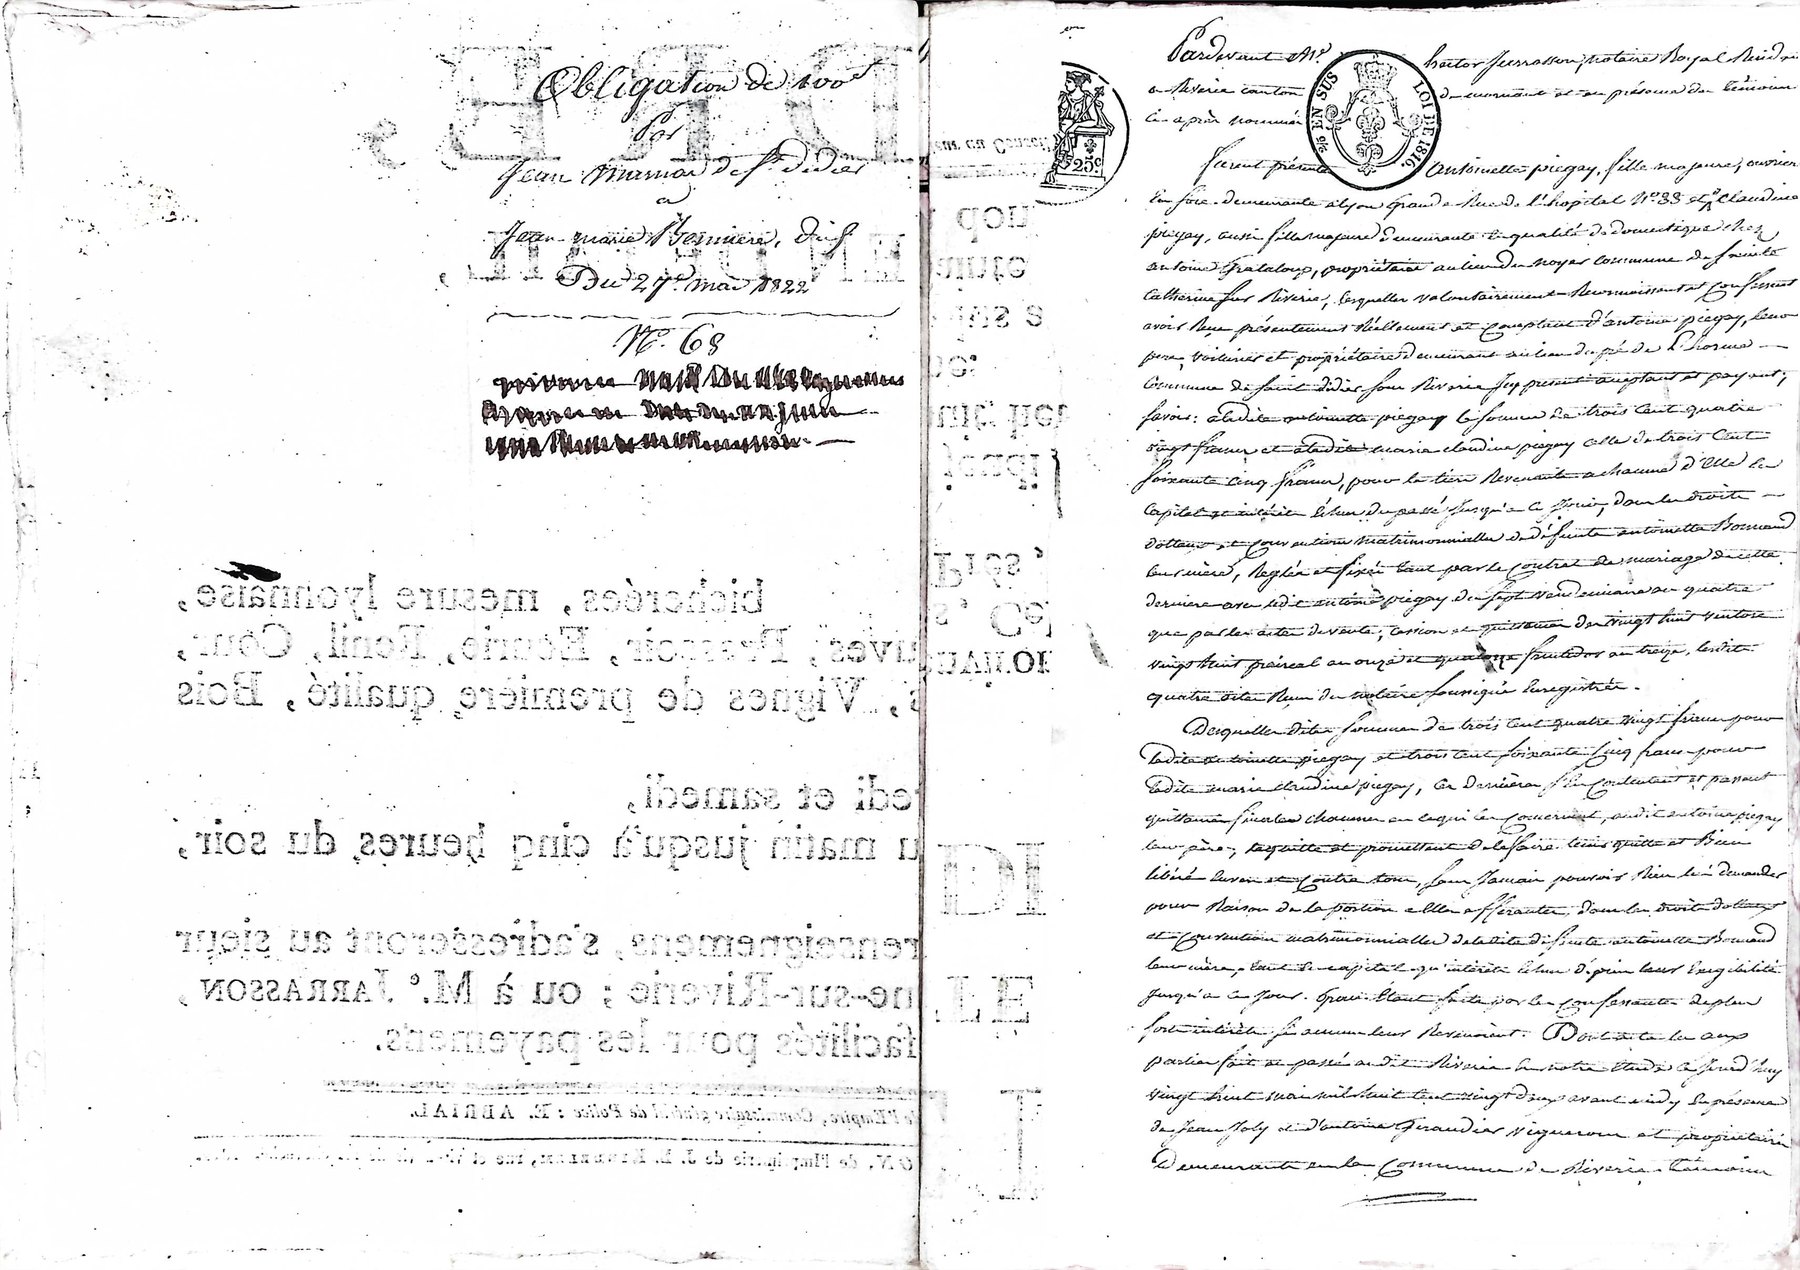 Obligation de 100f
Par
Jean Marnas de St. didier
a
Jean marie Bonniere, dud.
Du 27e. mai 1822
N°. 68
bicherées, mesure lyonnaise,
Cuves, Pressoir, Écurie, Fenil, Cour,
Vignes de première qualité, Bois
et samedi,
du matin jusqu'à cinq heures du soir,
renseignemens, s'adresseront au sieur
-sur-Riverie; ou à M.e JARRASSON,
facilités pour les payemens.
de l'Empire, Commissaire général de Police : E. ABRIAL.
de l'Imprimerie de J. L.
25c.
5/c EN SUS LOI DE 1816.
Pardevant Me. hector Jarrasson, notaire Royal Residant
a Riverie canton de mornant et en présence des témoins
Ci après nommés
Furent présente antoinette piegay, fille majeure, ouvriere
En soie demeurante a lyon Grande Rue de l'hopital N°. 88 et Claudine
piegay, aussi fille majeure demeurante En qualité de domestique chez
antoine Grataloup, propriétaire au lieu du noyer Commune de Sainte
Catherine sur Riverie, lesquelles volontairement Reconnoissent et Confessent
avoir Reçu présentement Réellement et Comptant d'antoine piegay, leur
pere, voiturier et propriétaire demeurant au lieu du pré de L'horme
Commune de Saint didier sous Riverie Icy présent acceptant et payant;
savoir: a ladite antoinette piegay la somme de trois Cent quatre
vingt francs et a ladite marie claudine piegay celle de trois Cent
soixante cinq francs, pour le tiers Revenant a chacune d'Elles en
Capital et intérêts Echus du passé Jusqu'a ce Jour, dans les droits
dottaux et Conventions matrimonialles de défunte antoinette Bonnand
leur mère, Reglés et fixés tant par le Contrat de mariage de cette
derniere avec ledit antoine piegay du sept vendemiaire an quatre
que par les actes de vente, cession et quittance des vingt huit ventose
vingt huit prairial an onze et quatorze fructidor an treize, lesdits
quatre actes Reçus du notaire soussigné Enregistrés.
Desquelles dites sommes de trois Cent quatre vingt francs pour
ladite antoinette piegay et trois Cent soixante Cinq francs pour
ladite marie claudine piegay, ces dernières s'En Contentent et passent
quittance finale chacune en ce qui les Concernent, audit antoine piegay
leur père, l'en quitte et promettent de le faire tenir quitte et Bien
libéré Envers et Contre tous, sans Jamais pouvoir Rien lui demander
pour Raison de la portion a Elles afférantes, dans les droits dottaux
et Conventions matrimonialles de ladite défunte antoinette Bonnand
leur mère, tant En capital qu'intérêts Echus depuis leur Exigibilité
Jusqu'a ce Jour. Grace Etant faite par les Confessantes de plus
forts intérêts si aucuns leur Revenoient. Dont acte lu aux
parties fait et passé audit Riverie En notre Etude ce Jourd'huy
vingt huit mai mil huit Cent vingt deux avant midy En présence
de Jean Joly et d'antoine Giraudier vigneron et propriétaire
Demeurants en la Commune de Riverie. témoins